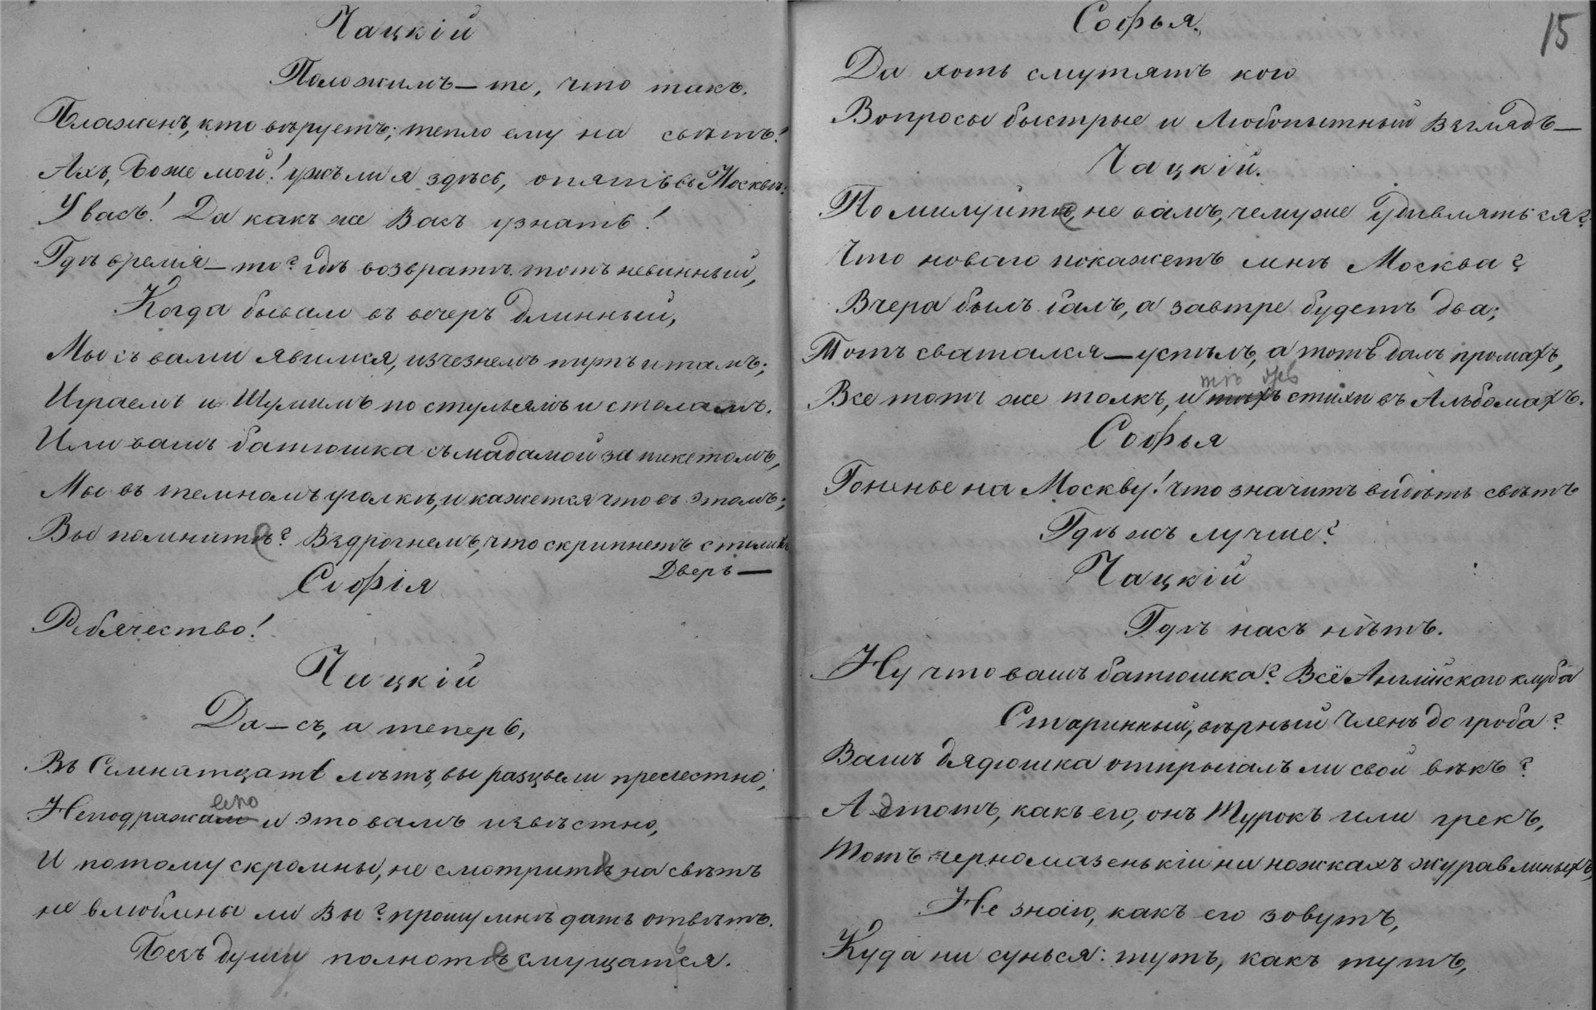 Чацкій
Положимъ—те, что такъ.
Блаженъ, кто вѣруетъ; тепло ему на свѣтѣ!
Ахъ, Боже мой! ужъ ли я здѣсь, опять въ Москвѣ.
У васъ! Да какъ же Васъ узнать!
Гдѣ время—то? гдѣ возвратъ тотъ невинный,
Когда бывало въ вечеръ длинный,
Мы съ вами явимся, изчезнемъ тутъ и тамъ;
Играемъ и Шумимъ по стульямъ и столамъ.
Или вашъ батюшка съ мадамой за пикетомъ,
Мы въ темномъ уголкѣ, и кажется что въ этомъ;
Вы помните? Вздрогнемъ, что скрипнетъ столикъ
Дверь—
Софія
Ребячество!
Чацкій
Да—съ, а теперь,
Въ Семнатцать лѣтъ, вы разцвели прелестно,
Неподражаемо и это вамъ извѣстно,
И потому скромны, не смотрите на свѣтъ
не влюблены ли Вы? прошу мнѣ дать отвѣтъ.
Безъ думы полноте смущаться.
15
Софья.
Да хоть смутятъ кого
Вопросы быстрые и Любопытный Взглядъ—
Чацкій.
Помилуйте, не вамъ, чему же удивляться?
Что новаго покажетъ мнѣ Москва?
Вчера былъ балъ, а завтре будетъ два;
Тотъ сватался—успѣлъ, а тотъ далъ промахъ,
Все тотъ же толкъ, и тѣ жъ стихи въ Альбомахъ.
Софья
Гоненье на Москву! что значитъ видѣть свѣтъ
Гдѣ жъ лучше?
Чацкій
Гдѣ насъ нѣтъ.
Ну что вашъ батюшка? Всё Англійскаго клуба
Старинный, вѣрный Членъ до гроба?
Вашъ дядюшка отпрыгалъ ли свой вѣкъ?
А этотъ, какъ его, онъ Турокъ или грекъ,
Тотъ черномазенькій на ножкахъ журавлиныхъ,
Не знаю, какъ его зовутъ,
Куда ни сунься: тутъ, какъ тутъ,